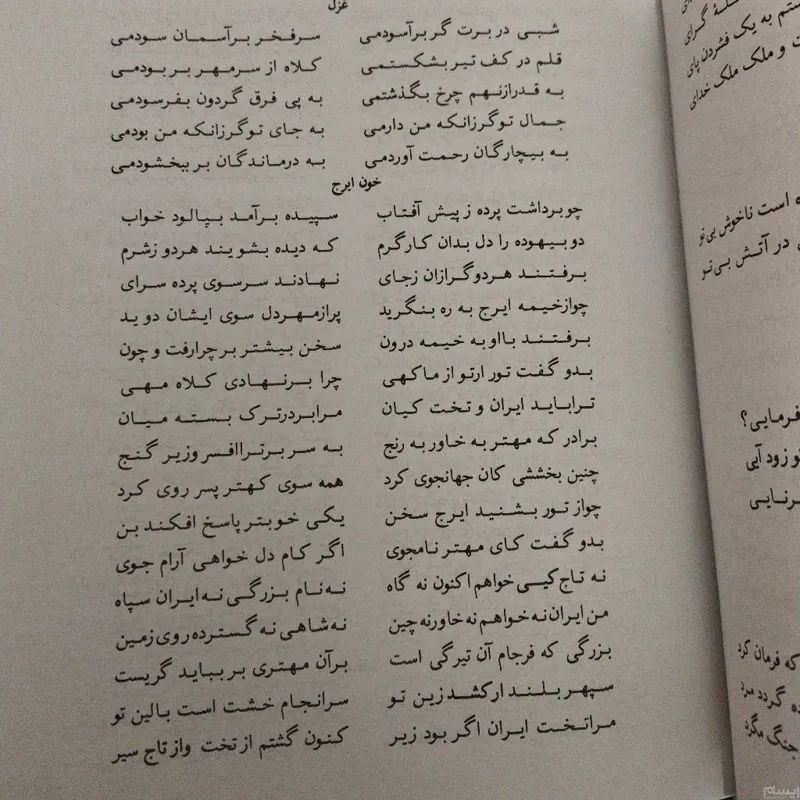 غزل
شبی در برت گر برآسودمی سرفخر برآسمان سودمی
قلم در کف تیر بشکستمی کلاه از سرمهر بربودمی
به قدرازنهم چرخ بگذشتمی به پی فرق گردون بفرسودمی
جمال توگرزانکه من دارمی به جای توگرزانکه من بودمی
به بیچارگان رحمت آوردمی به درماندگان بربخشودمی
خون ایرج
چوبرداشت پرده زپیش آفتاب سپیده برآمد بپالود خواب
دوبیهوده را دل بدان کارگرم که دیده بشویند هردوزشرم
برفتند هردوگرازان زجای نهادند سرسوی پرده سرای
چوازخیمه ایرج به ره بنگرید پرازمهردل سوی ایشان دوید
برفتند بااوبه خیمه درون سخن بیشتر برچرارفت وچون
بدو گفت تور ارتو از ماکهی چرا برنهادی کلاه مهی
تراباید ایران و تخت کیان مرابردرترک بسته میان
برادر که مهتر به خاور به رنج به سر برتراافسر وزیر گنج
چنین بخششی کان جهانجوی کرد همه سوی کهتر پسر روی کرد
چواز تور بشنید ایرج سخن یکی خوبتر پاسخ افکند بن
بدو گفت کای مهتر نامجوی اگر کام دل خواهی آرام جوی
نه تاج کیی خواهم اکنون نه گاه نه نام بزرگی نه ایران سپاه
من ایران نه خواهم نه خاورنه چین نه شاهی نه گسترده روی زمین
بزرگی که فرجام آن تیرگی است برآن مهتری بر بباید گریست
سپهر بلند ارکشد زین تو سرانجام خشت است بالین تو
مراتخت ایران اگر بود زیر کنون گشتم از تخت وازتاج سیر
ستم به یک فشردن پای
ت و ملک ملک خدای
ه است ناخوش بی تو
در آتش بی تو
فرمایی؟
تو زود آیی
که فرمان کرد
ده گردد مرد
جنگ مگرد
ایسام